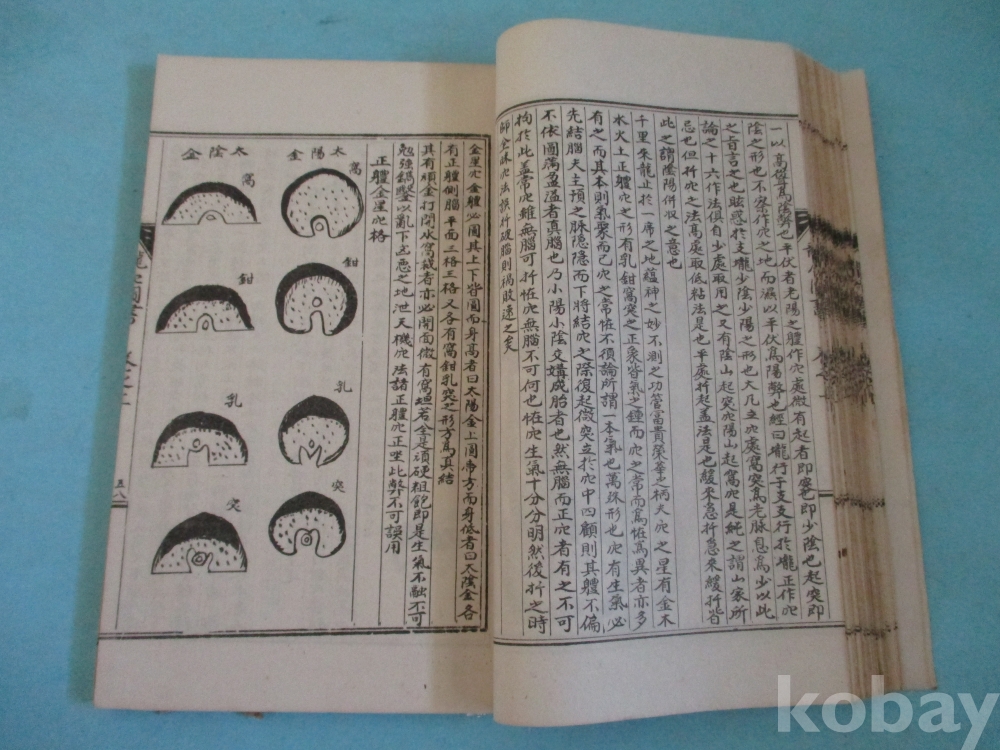 一以高聳爲陰與也平伏者老陽之體作穴處微有起者即窩也即少陰也起突即
陰之形也不察作穴之地而濕以平伏爲陽弊也經曰壠行于支支行於壠正作穴
之旨言之也眩惑於支壠少陰少陽之形也大凡立穴處窩突爲老脉息爲少以此
論之十六作法俱自少處取用之又有陰山起突陽山起窩穴是純之謂山家所
忌也但扦穴之法高處取低粘法是也平處扦起盖法是也緩來急扦急來緩扦皆
此之謂陰陽併収之意也
千里來龍止於一席之地蘊神之妙不測之功管富貴榮華之柄夫穴之星有金木
水火土正體穴之形有乳鉗窩突之正象皆氣之鍾而穴之常而爲恠爲異者亦多
有之而其本則氣聚而已穴之常恠不須論所謂一本氣也萬殊形也穴有生氣必
先結腦天主預之脉隱隱而下將結穴之際復起微突立於穴中四顧則其體不偏
不依圓蕩盈溢者真腦也乃小陽小陰交媾成胎者也然無腦而正穴者有之不可
拘於此盖常穴雖無腦可扦恠穴無腦不可何也恠穴生氣十分分明然後扦之時
師全昧穴法誤扦破腦則禍敗速之矣
金星穴金體必圓其上下皆圓而身高者曰太陽金上圓帶方而身低者曰太陰金各
有正體側腦平面三格三格又各有窩鉗乳突之形方爲真結
具有頑金打開水窩裁者亦必開面微有窩坦若全是頑硬粗飽即是生氣不融不可
勉强鍋鑿以亂下凶惡之地泄天機穴法諸正體穴正坐此弊不可誤用
正體金星穴格
太陽金
窩
鉗
乳
突
太陰金
窩
鉗
乳
突
五八
kobay